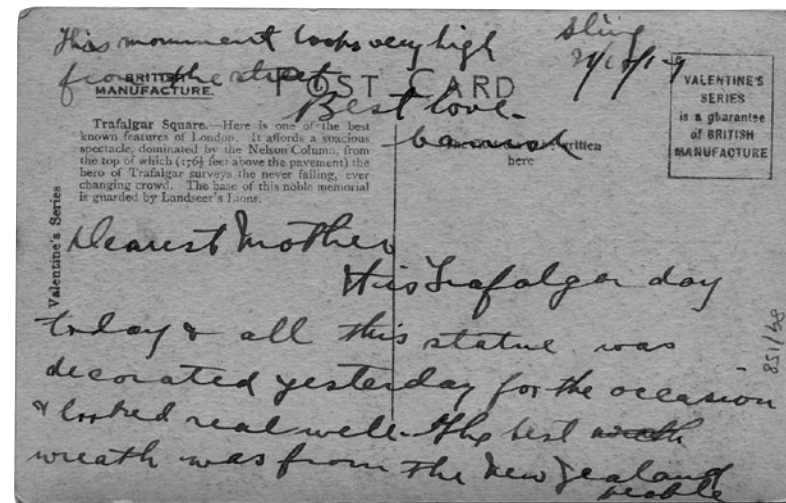 This monument looks very high
from the street
Best love.
Sling
BRITISH
MANUFACTURE.
POST CARD
VALENTINE'S
SERIES
is a guarantee
of BRITISH
MANUFACTURE
Trafalgar Square.—Here is one of the best
known features of London. It affords a spacious
spectacle, dominated by the Nelson Column, from
the top of which (176½ feet above the pavement) the
hero of Trafalgar surveys the never failing, ever
changing crowd. The base of this noble memorial
is guarded by Landseer's Lions.
written
here
Valentine's Series
Dearest Mother
It is Trafalgar day
today & all this statue was
decorated yesterday for the occasion
& looked real well. The best
wreath was from the New Zealand
people
84/158